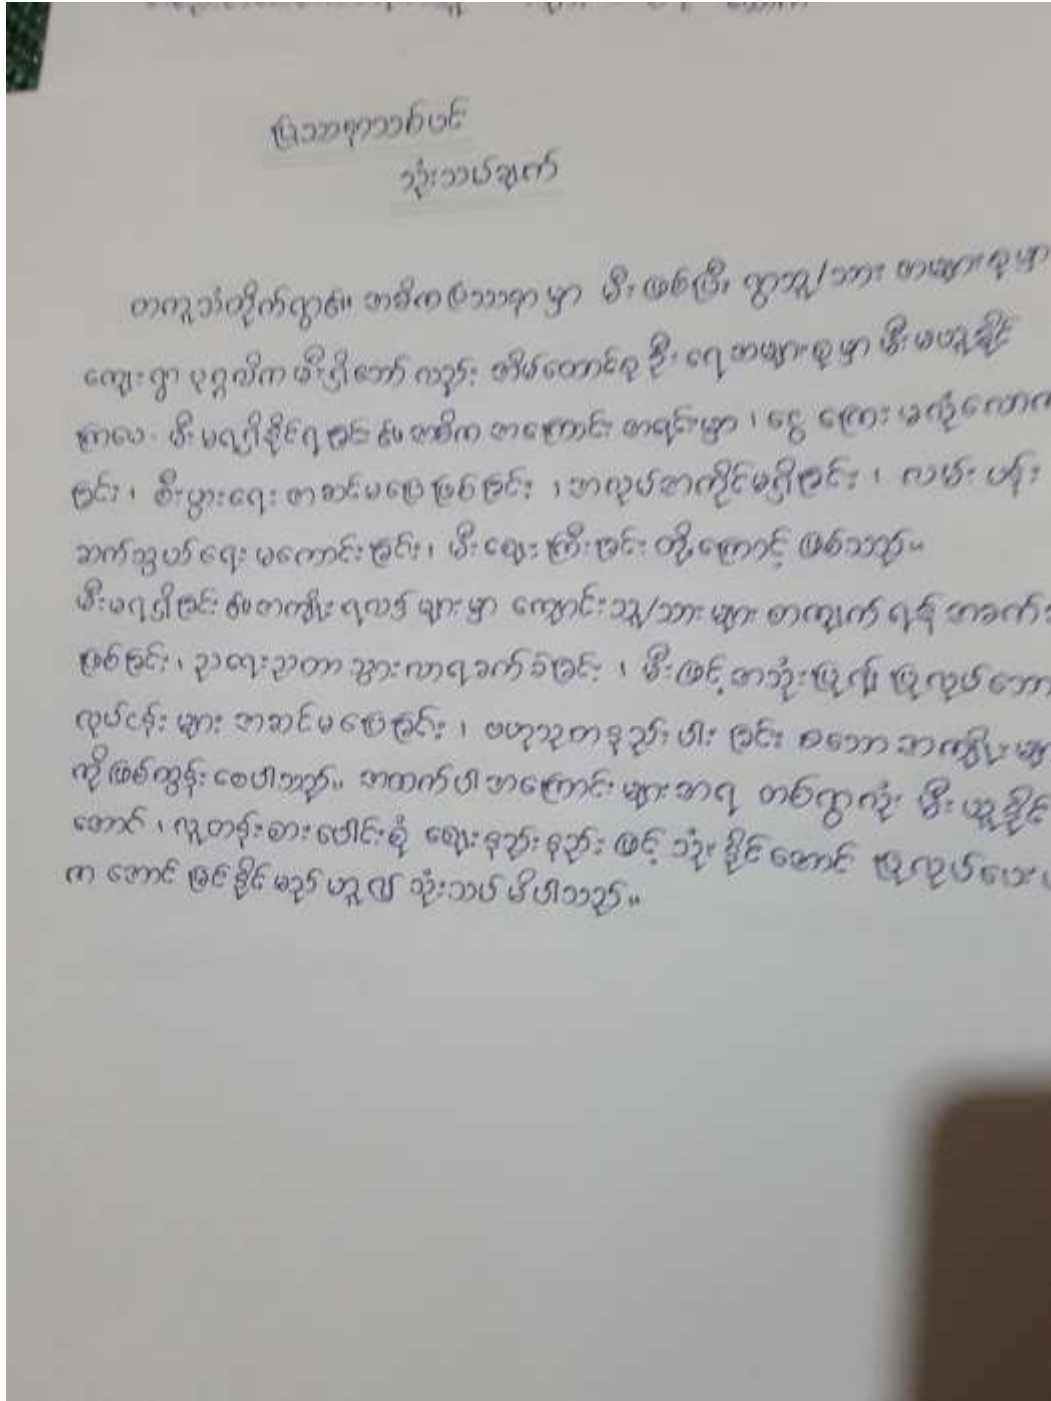 ပြဿနာသစ်ပင်
သုံးသပ်ချက်
တကူသံတိုက်ရွာ၏ အဓိကပြဿနာမှာ မီးဖြစ်ပြီး ရွာသူ/သား အများစုမှာ
ကျေးရွာ ပုဂ္ဂလိက မီးရှိသော်လည်း အိမ်ထောင်စု ဦးရေအများစုမှာ မီးမယူနိုင်
ကြပေ. မီးမရရှိနိုင်ရခြင်း၏ အဓိက အကြောင်း အရင်းမှာ ၊ ငွေကြေး မလုံလောက်
ခြင်း ၊ စီးပွားရေး အဆင်မပြေဖြစ်ခြင်း ၊ အလုပ်အကိုင်မရှိခြင်း ၊ လမ်းပန်း
ဆက်သွယ်ရေး မကောင်းခြင်း ၊ မီးဈေးကြီးခြင်း တို့ကြောင့် ဖြစ်သည်။
မီးမရရှိခြင်း၏ အကျိုးရလဒ်များမှာ ကျောင်းသူ/သားများ စာကျက်ရန် အခက်
ဖြစ်ခြင်း ၊ ညရေးညတာ သွားလာရခက်ခဲခြင်း ၊ မီးဖြင့်အသုံးပြု၍ ပြုလုပ်သော
လုပ်ငန်းများ အဆင်မပြေခြင်း ၊ ဗဟုသုတနည်းပါးခြင်း စသော အကျိုး
ကိုဖြစ်ထွန်းစေပါသည်။ အထက်ပါအကြောင်းများအရ တစ်ရွာလုံး မီးယူနိုင်
အောင် ၊ လူတန်းစားပေါင်းစုံ ဈေးနည်းနည်း ဖြင့် သုံးနိုင်အောင် ပြုလုပ်ပေး
က အောင်မြင်နိုင်မည်ဟူ၍ သုံးသပ်မိပါသည်။